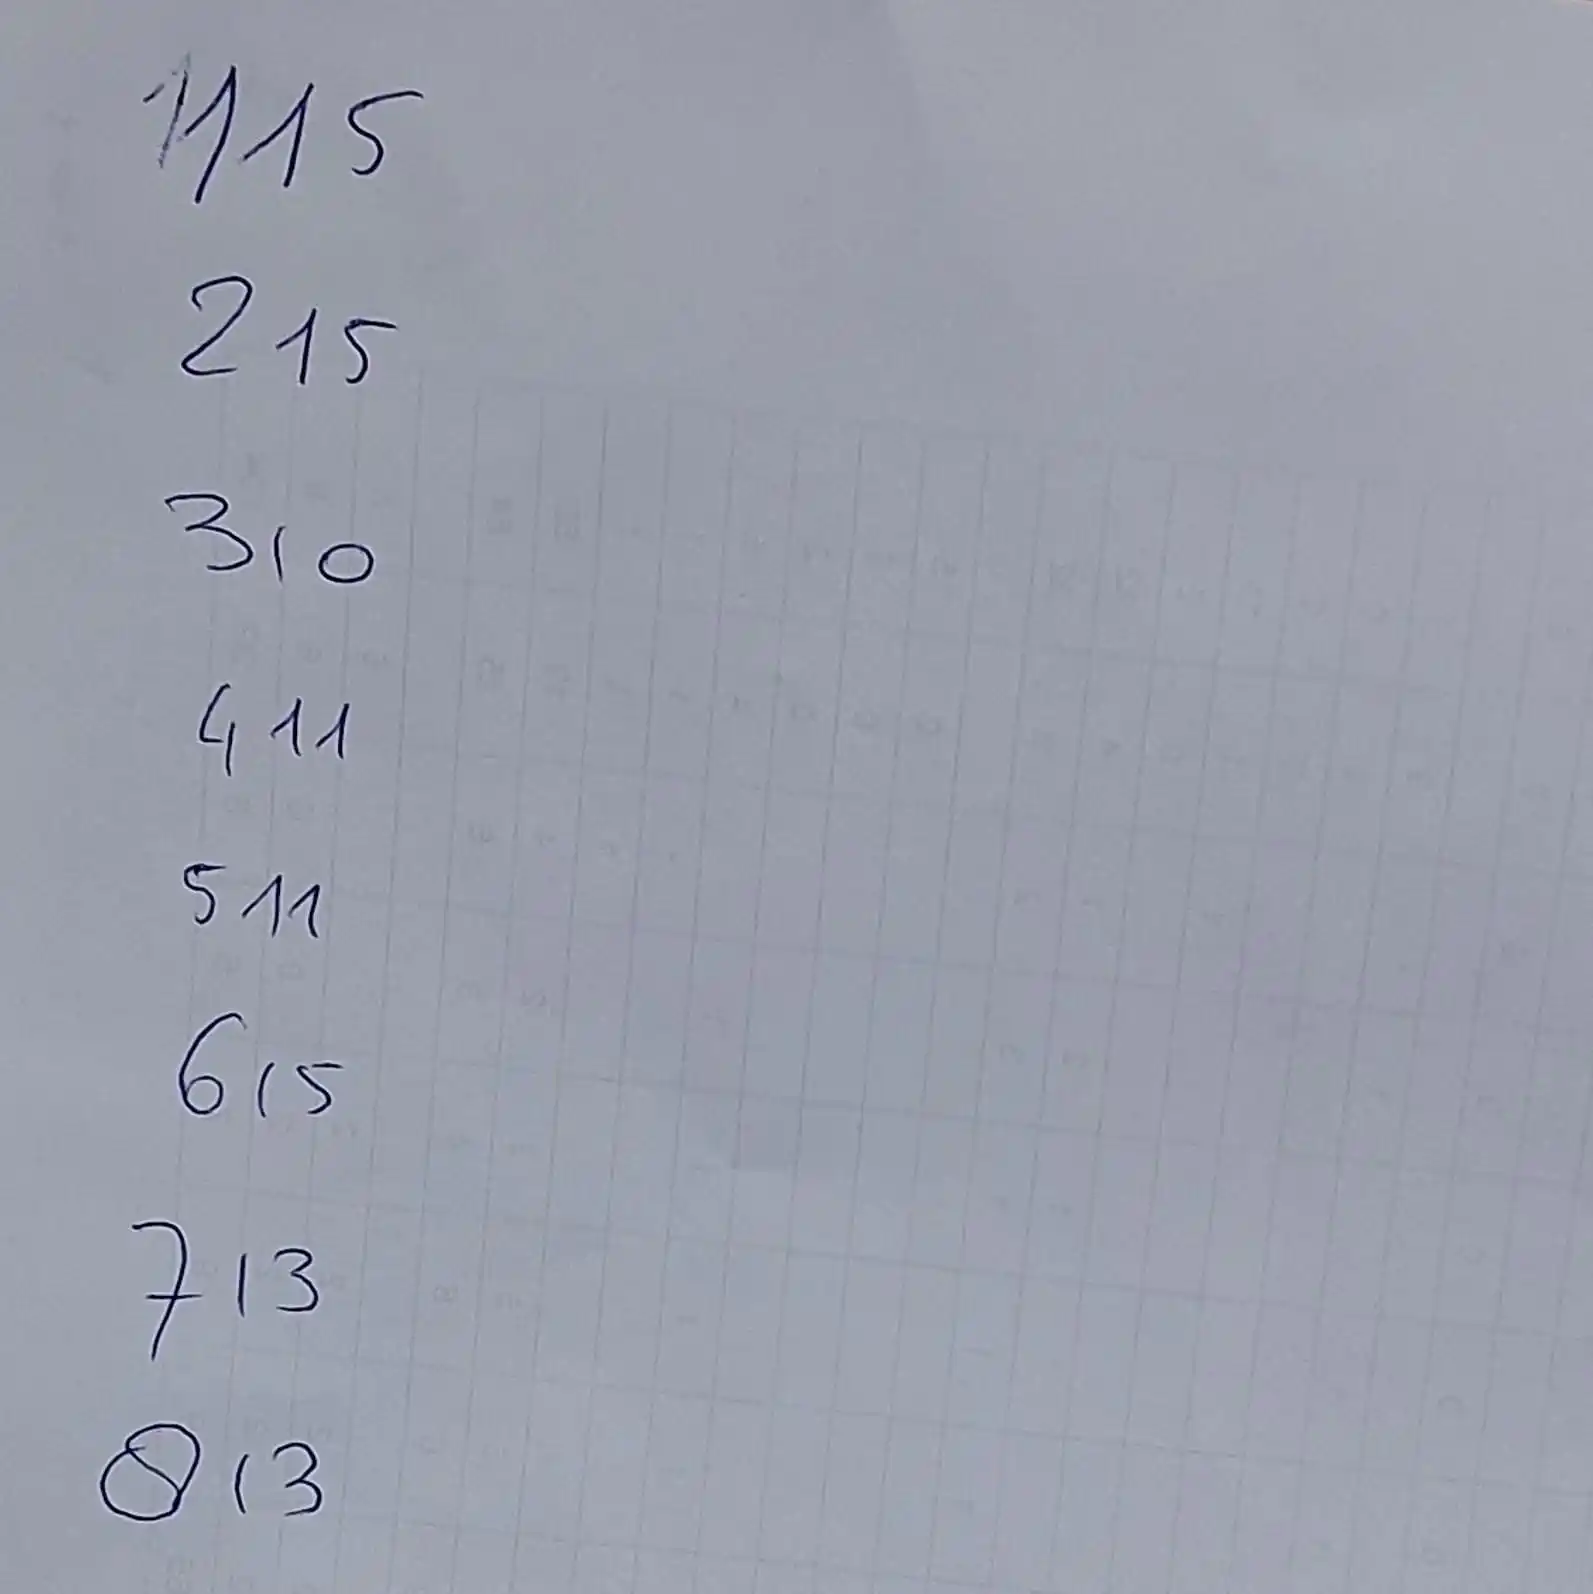 1 15
2 15
3 10
4 11
5 11
6 15
7 13
8 13